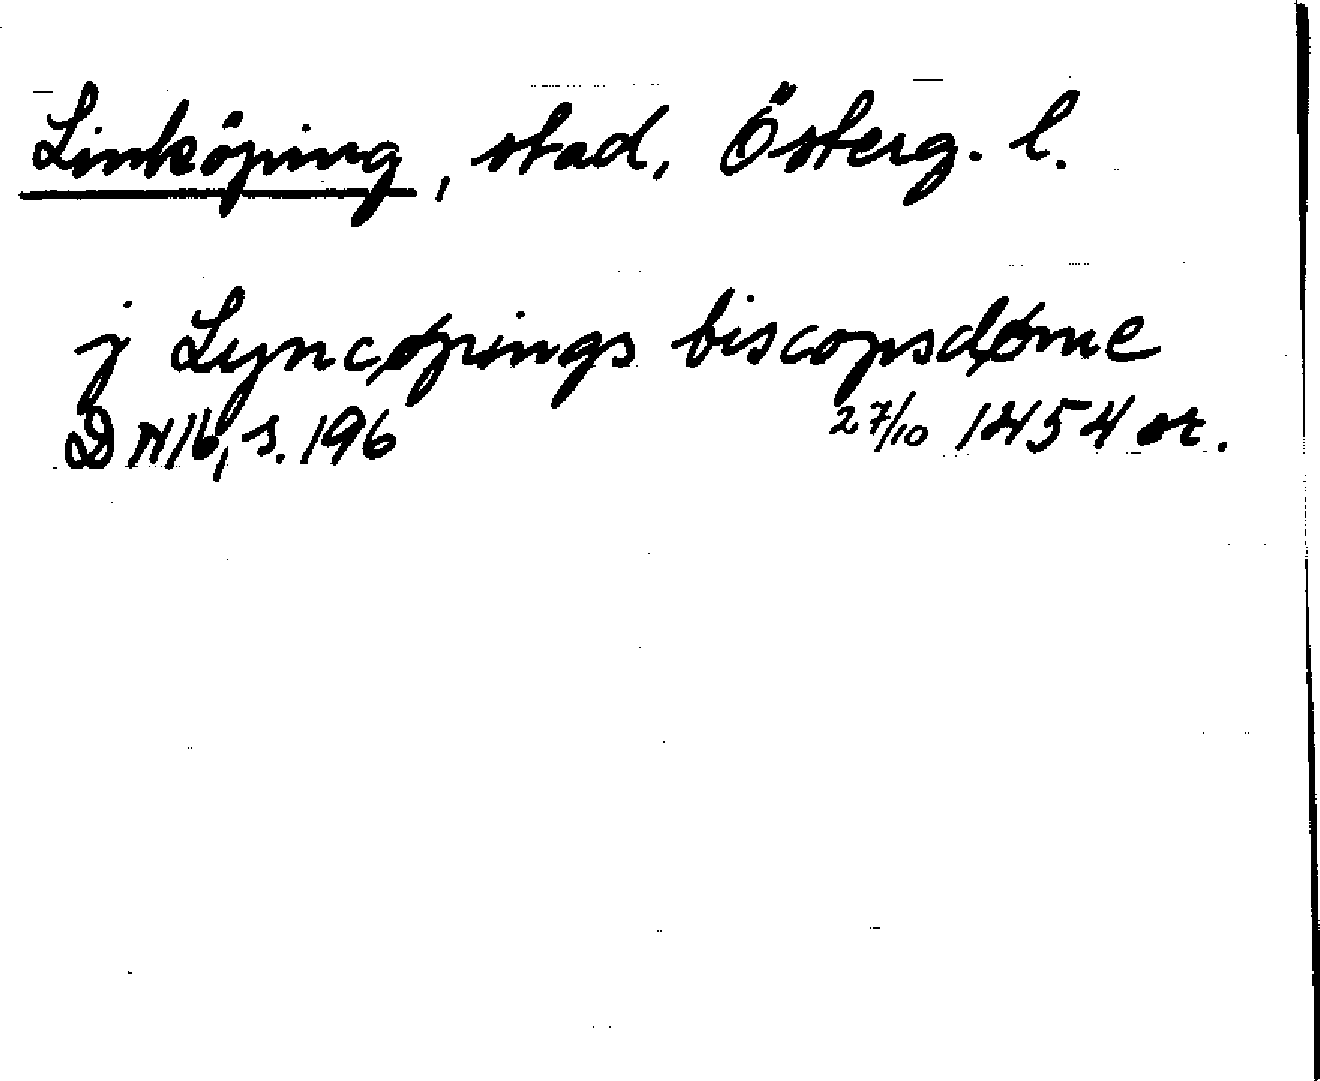 Linköping, stad, Österg. l.
j Lyncøpings biscopsdøme
DN 16, s. 196 27/10 1454 or.